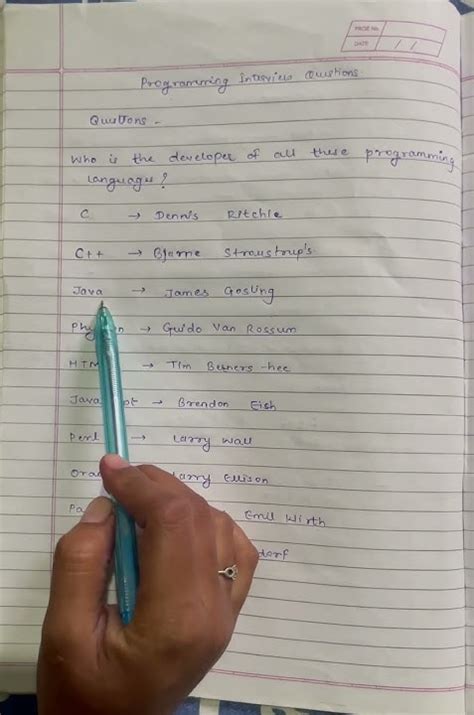 PAGE No.
DATE / /
Programming Interview Questions
Questions -
Who is the developer of all these programming
languages?
C → Dennis Ritchie
C++ → Bjarne Stroustrup's
Java → James Gosling
→ Guido Van Rossum
→ Tim Berners-hee
→ Brendon Eish
Perl → Larry Wall
Larry Ellison
Emil Wirth